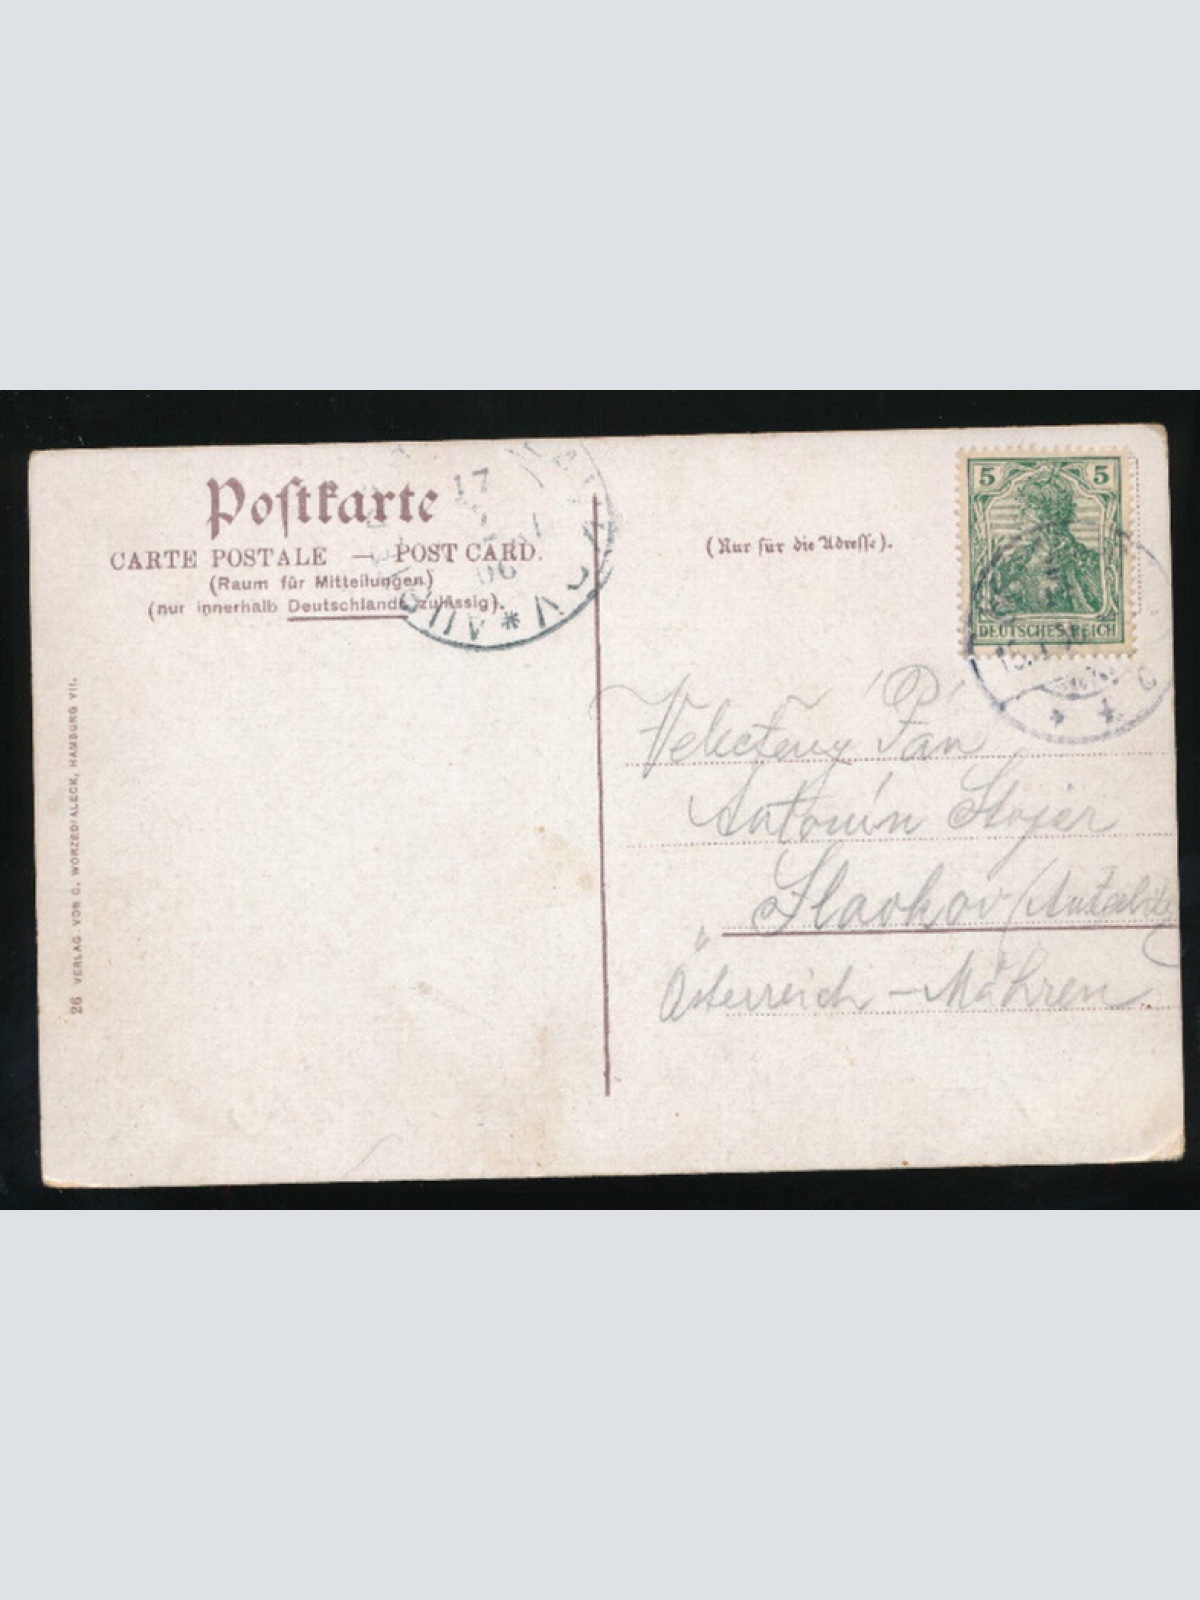 Postkarte
CARTE POSTALE — POST CARD.
(Raum für Mitteilungen)
(nur innerhalb Deutschlands zulässig).
17
06
(Nur für die Adresse).
5 5
DEUTSCHES REICH
Velectěný Pán
Antonín Stojar
Slavkov
Österreich – Mähren.
26 VERLAG VON C. WORZEDIALECK, HAMBURG VII.